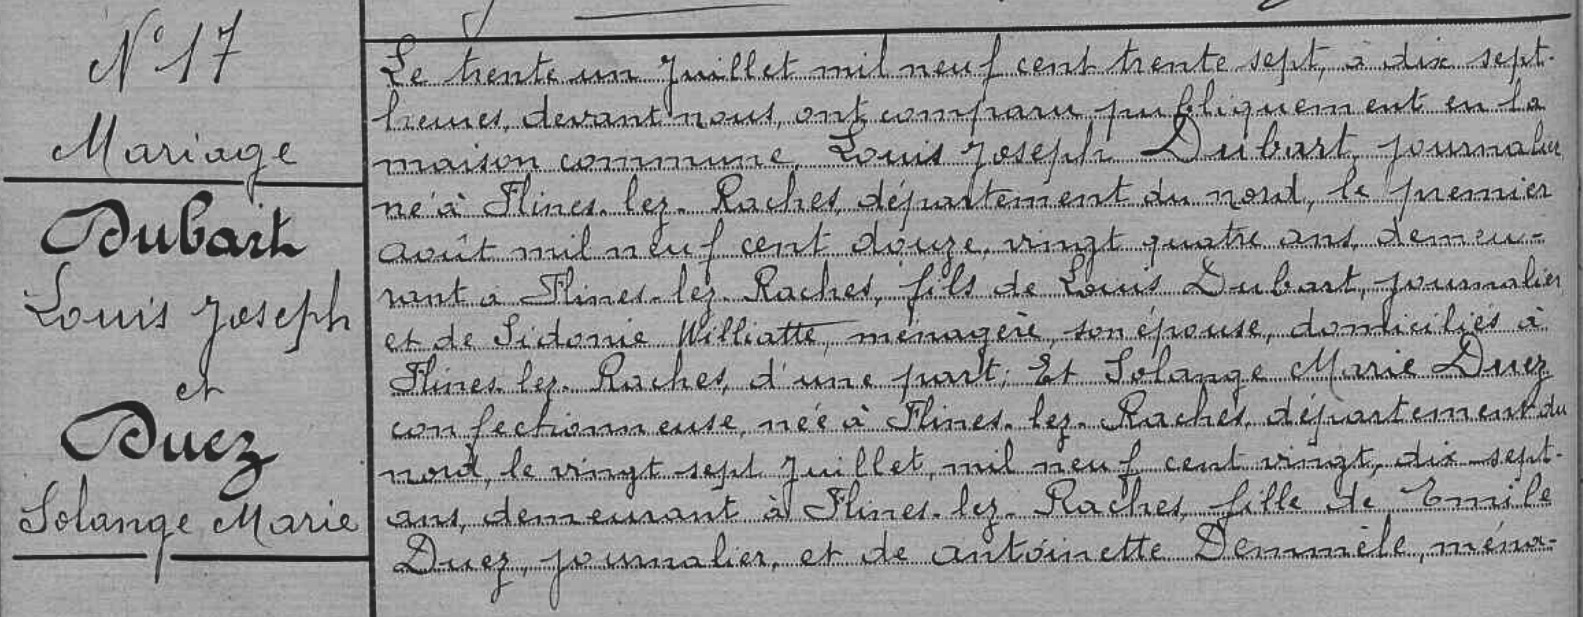 N° 17
Mariage
Dubart
Louis Joseph
et
Duez
Solange Marie
Le trente un Juillet mil neuf cent trente sept, à dix sept-
heures, devant nous, ont comparu publiquement en la
maison commune, Louis Joseph Dubart, journalier
né à Flines-lez-Raches, département du nord, le premier
août mil neuf cent douze, vingt quatre ans, demeu-
rant à Flines-lez-Raches, fils de Louis Dubart, journalier
et de Sidonie Williatte, ménagère, son épouse, domiciliés à
Flines-lez-Raches, d'une part; Et Solange Marie Duez
confectionneuse, née à Flines-lez-Raches, département du
nord, le vingt sept Juillet, mil neuf cent vingt, dix-sept-
ans, demeurant à Flines-lez-Raches, fille de Emile
Duez, journalier, et de antoinette Demmèle, ména-